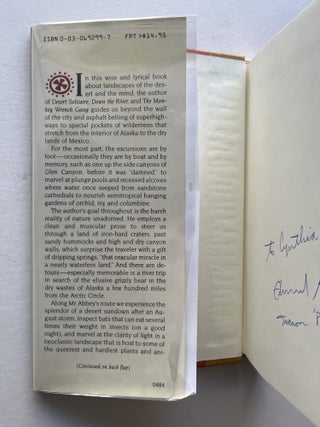 ISBN 0-03-069299-7 FPT >$14.95
In this wise and lyrical book
about landscapes of the des-
ert and the mind, the author
of Desert Solitaire, Down the River, and The Mon-
key Wrench Gang guides us beyond the wall
of the city and asphalt belting of superhigh-
ways to special pockets of wilderness that
stretch from the interior of Alaska to the dry
lands of Mexico.
For the most part, the excursions are by
foot—occasionally they are by boat and by
memory, such as one up the side canyons of
Glen Canyon, before it was "damned," to
marvel at plunge pools and recessed alcoves
where water once seeped from sandstone
cathedrals to nourish semitropical hanging
gardens of orchid, ivy, and columbine.
The author's goal throughout is the harsh
reality of nature unadorned. He employs a
clean and muscular prose to steer us
through a land of iron-hard craters, past
sandy hummocks and high and dry canyon
walls, which surprise the traveler with a gift
of dripping springs, "that oracular miracle in
a nearly waterless land." And there are de-
tours—especially memorable is a river trip
in search of the elusive grizzly bear in the
dry wastes of Alaska a few hundred miles
from the Arctic Circle.
Along Mr. Abbey's route we experience the
splendor of a desert sundown after an Au-
gust storm, inspect bats that can eat several
times their weight in insects (on a good
night), and marvel at the clarity of light in a
neoclassic landscape that is host to some of
the queerest and hardiest plants and ani-
(Continued on back flap)
0484
to Cynthia